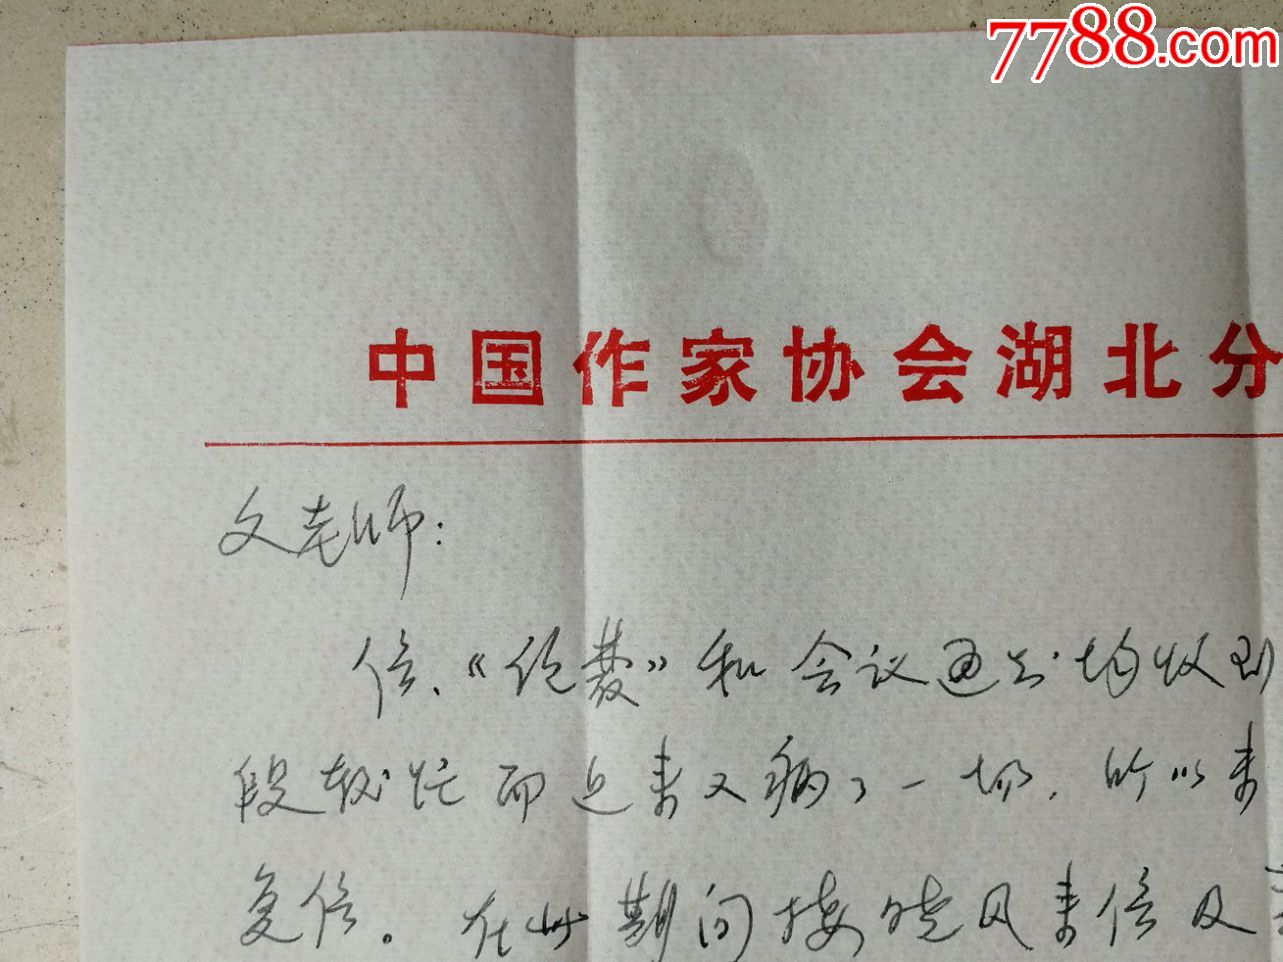 7788.com
中国作家协会湖北分
文老师：
信、《绝赘》和会议通知均收到
段较忙而近来又病了一场，所以未
复信。在此期间接晓风来信及